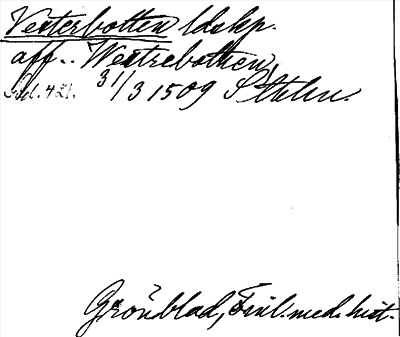 Vesterbotten ldskp.
aff.. Westrebothen,
31/3 1509 Sthlm.
Grönblad, Finl. med. hist.